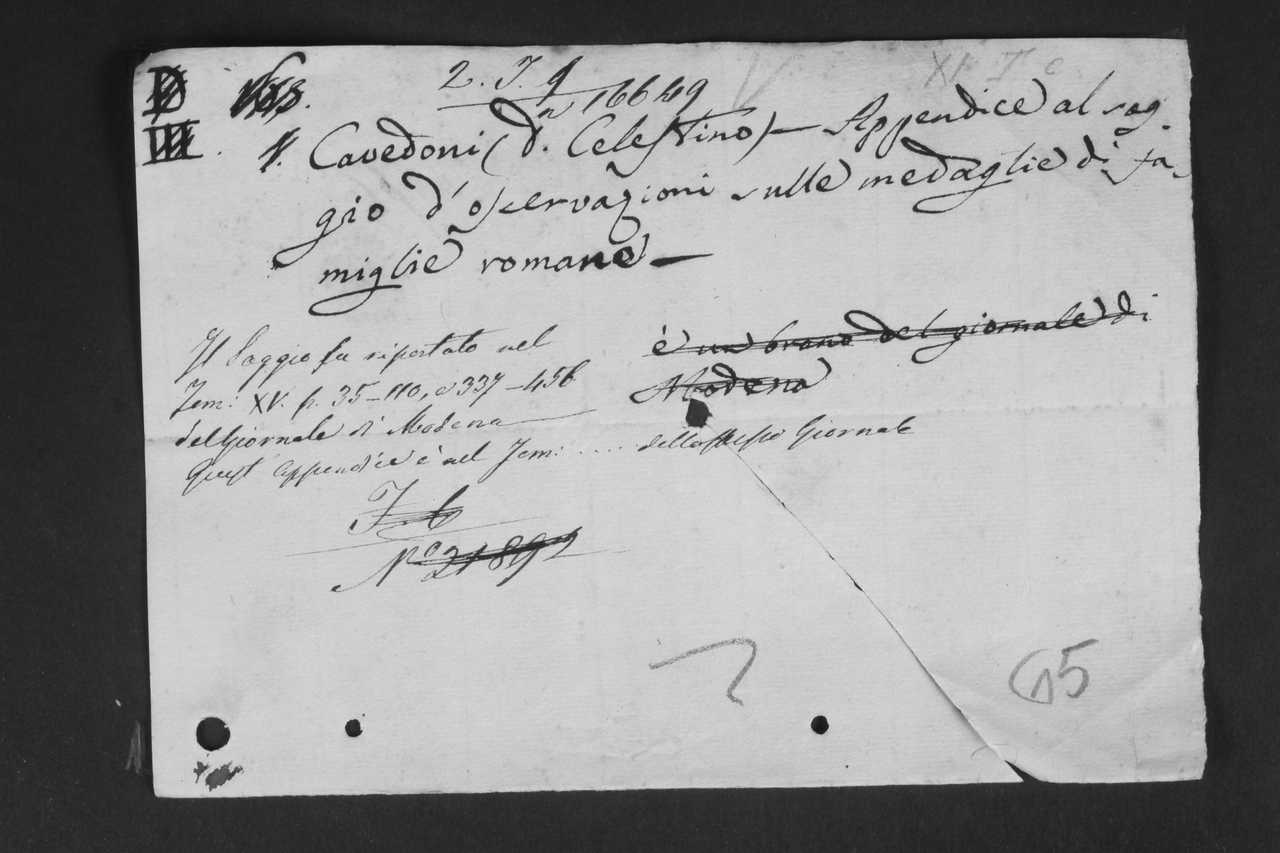 2. I. 9
n 16649
XI. I. c
1. Cavedoni (d.n Celestino) — Appendice al sag-
gio d'osservazioni sulle medaglie di fa-
miglie romane —
Il Saggio fu riportato nel
Tom: XV. p. 35-110, e 337-456
del Giornale di Modena
è un brano del giornale di
Modena
Quest' appendice è nel Tom: .... dello stesso Giornale
No 21892
65